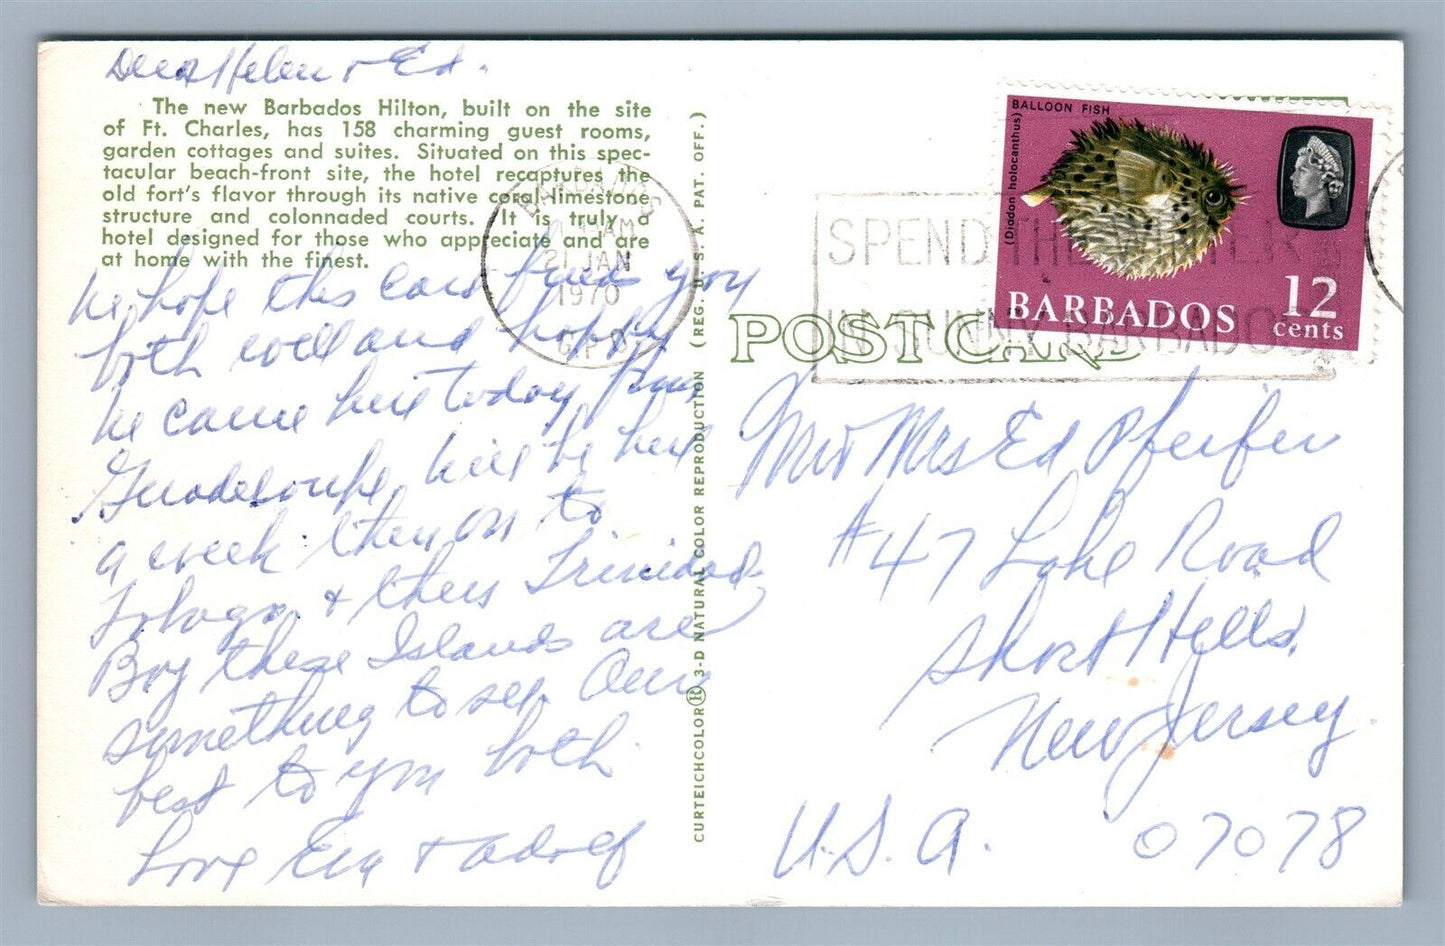 Dear Helen + Ed.
The new Barbados Hilton, built on the site
of Ft. Charles, has 158 charming guest rooms,
garden cottages and suites. Situated on this spec-
tacular beach-front site, the hotel recaptures the
old fort's flavor through its native coral-limestone
structure and colonnaded courts. It is truly a
hotel designed for those who appreciate and are
at home with the finest.
We hope this card finds you
both well and happy
We came here today from
Guadeloupe, will be here
a week then on to
Tobago + then Trinidad
Boy these Islands are
something to see. Our
best to you both
Love Eva + Adolf
CURTEICHCOLOR® 3-D NATURAL COLOR REPRODUCTION (REG. U. S. A. PAT. OFF.)
BARBADOS
AM
21 JAN
1970
G.P.O.
SPEND THE WINTER
IN SUNNY BARBADOS
BALLOON FISH
(Diodon holocanthus)
BARBADOS
12
cents
POST CARD
Mr & Mrs Ed Pfeifer
#47 Lake Road
Short Hills,
New Jersey.
U.S.A. 07078